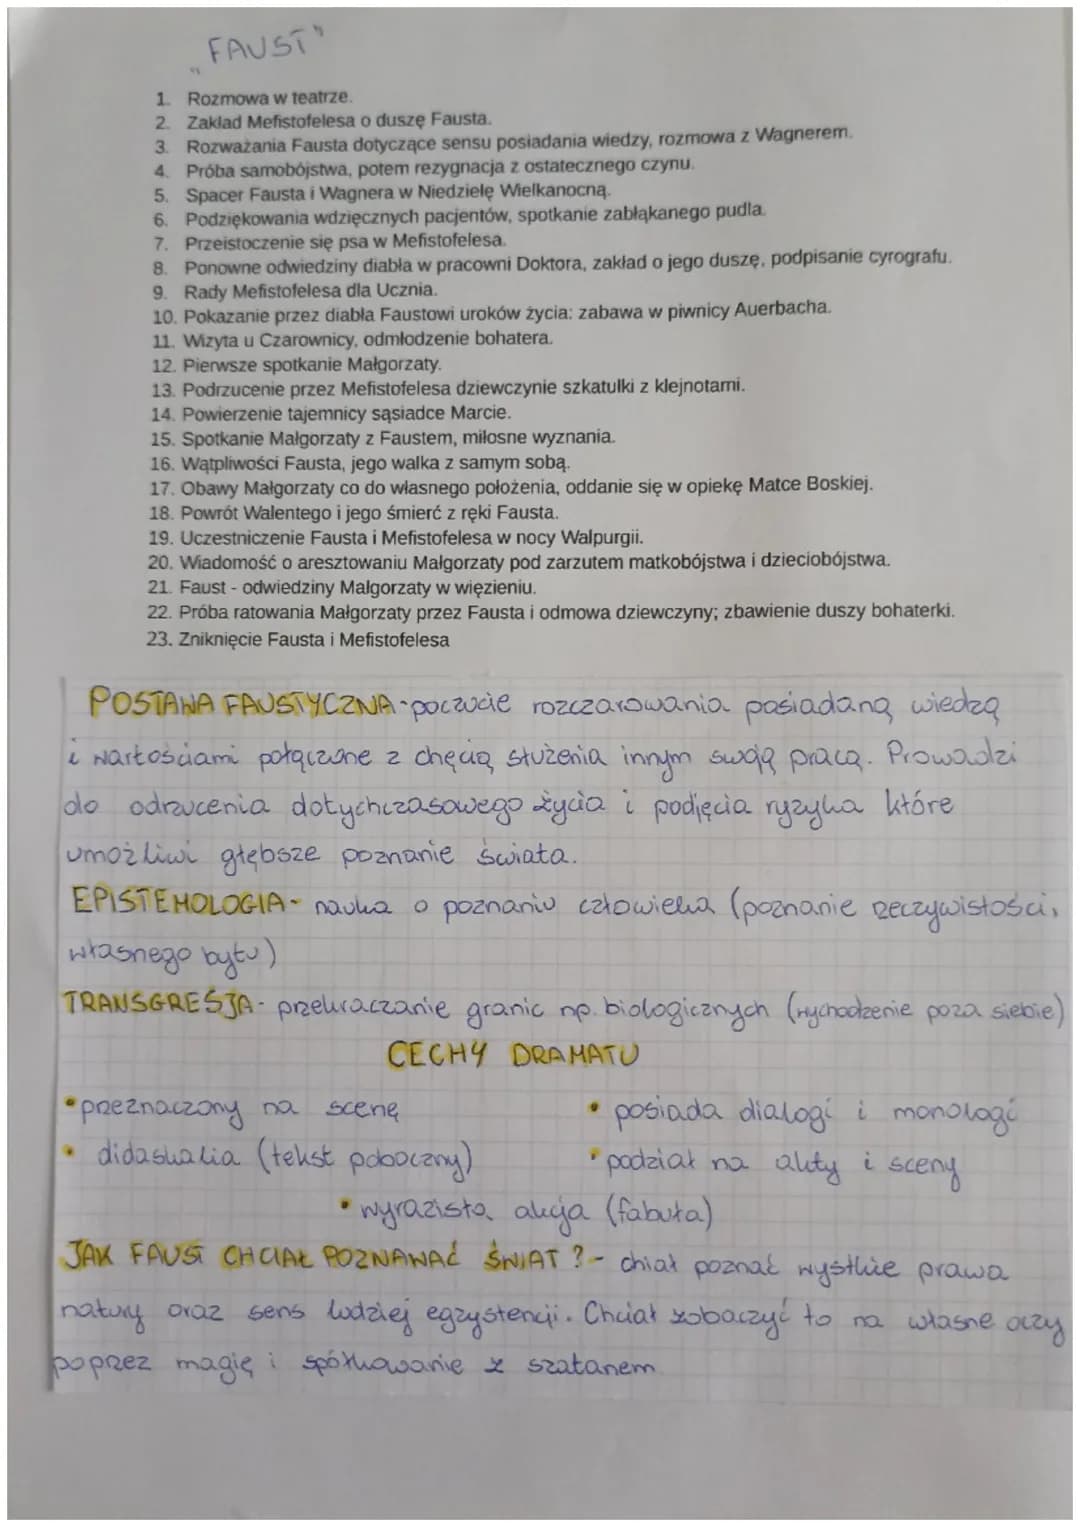 „FAUST"
1. Rozmowa w teatrze.
2. Zakład Mefistofelesa o duszę Fausta.
3. Rozważania Fausta dotyczące sensu posiadania wiedzy, rozmowa z Wagnerem.
4. Próba samobójstwa, potem rezygnacja z ostatecznego czynu.
5. Spacer Fausta i Wagnera w Niedzielę Wielkanocną.
6. Podziękowania wdzięcznych pacjentów, spotkanie zabłąkanego pudla.
7. Przeistoczenie się psa w Mefistofelesa.
8. Ponowne odwiedziny diabła w pracowni Doktora, zakład o jego duszę, podpisanie cyrografu.
9. Rady Mefistofelesa dla Ucznia.
10. Pokazanie przez diabła Faustowi uroków życia: zabawa w piwnicy Auerbacha.
11. Wizyta u Czarownicy, odmłodzenie bohatera.
12. Pierwsze spotkanie Małgorzaty.
13. Podrzucenie przez Mefistofelesa dziewczynie szkatułki z klejnotami.
14. Powierzenie tajemnicy sąsiadce Marcie.
15. Spotkanie Małgorzaty z Faustem, miłosne wyznania.
16. Wątpliwości Fausta, jego walka z samym sobą.
17. Obawy Małgorzaty co do własnego położenia, oddanie się w opiekę Matce Boskiej.
18. Powrót Walentego i jego śmierć z ręki Fausta.
19. Uczestniczenie Fausta i Mefistofelesa w nocy Walpurgii.
20. Wiadomość o aresztowaniu Małgorzaty pod zarzutem matkobójstwa i dzieciobójstwa.
21. Faust - odwiedziny Małgorzaty w więzieniu.
22. Próba ratowania Małgorzaty przez Fausta i odmowa dziewczyny; zbawienie duszy bohaterki.
23. Zniknięcie Fausta i Mefistofelesa
POSTAWA FAUSTYCZNA - poczucie rozczarowania posiadaną wiedzą
i wartościami połączone z chęcią służenia innym swoją pracą. Prowadzi
do odrzucenia dotychczasowego życia i podjęcia ryzyka które
umożliwi głębsze poznanie świata.
EPISTEMOLOGIA - nauka o poznaniu człowieka (poznanie rzeczywistości,
własnego bytu)
TRANSGRESJA - przekraczanie granic np. biologicznych (wychodzenie poza siebie)
CECHY DRAMATU
• przeznaczony na scenę • posiada dialogi i monologi
• didaskalia (tekst poboczny) • podział na akty i sceny
• wyrazista akcja (fabuła)
JAK FAUST CHCIAŁ POZNAWAĆ ŚWIAT? - chiał poznać wystkie prawa
natury oraz sens ludziej egzystencji. Chciał zobaczyć to na własne oczy
poprzez magię i spółkowanie z szatanem